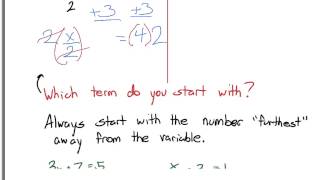 2 +3 +3
2(x/2) = (4)2
Which term do you start with?
Always start with the number "furthest"
away from the variable.